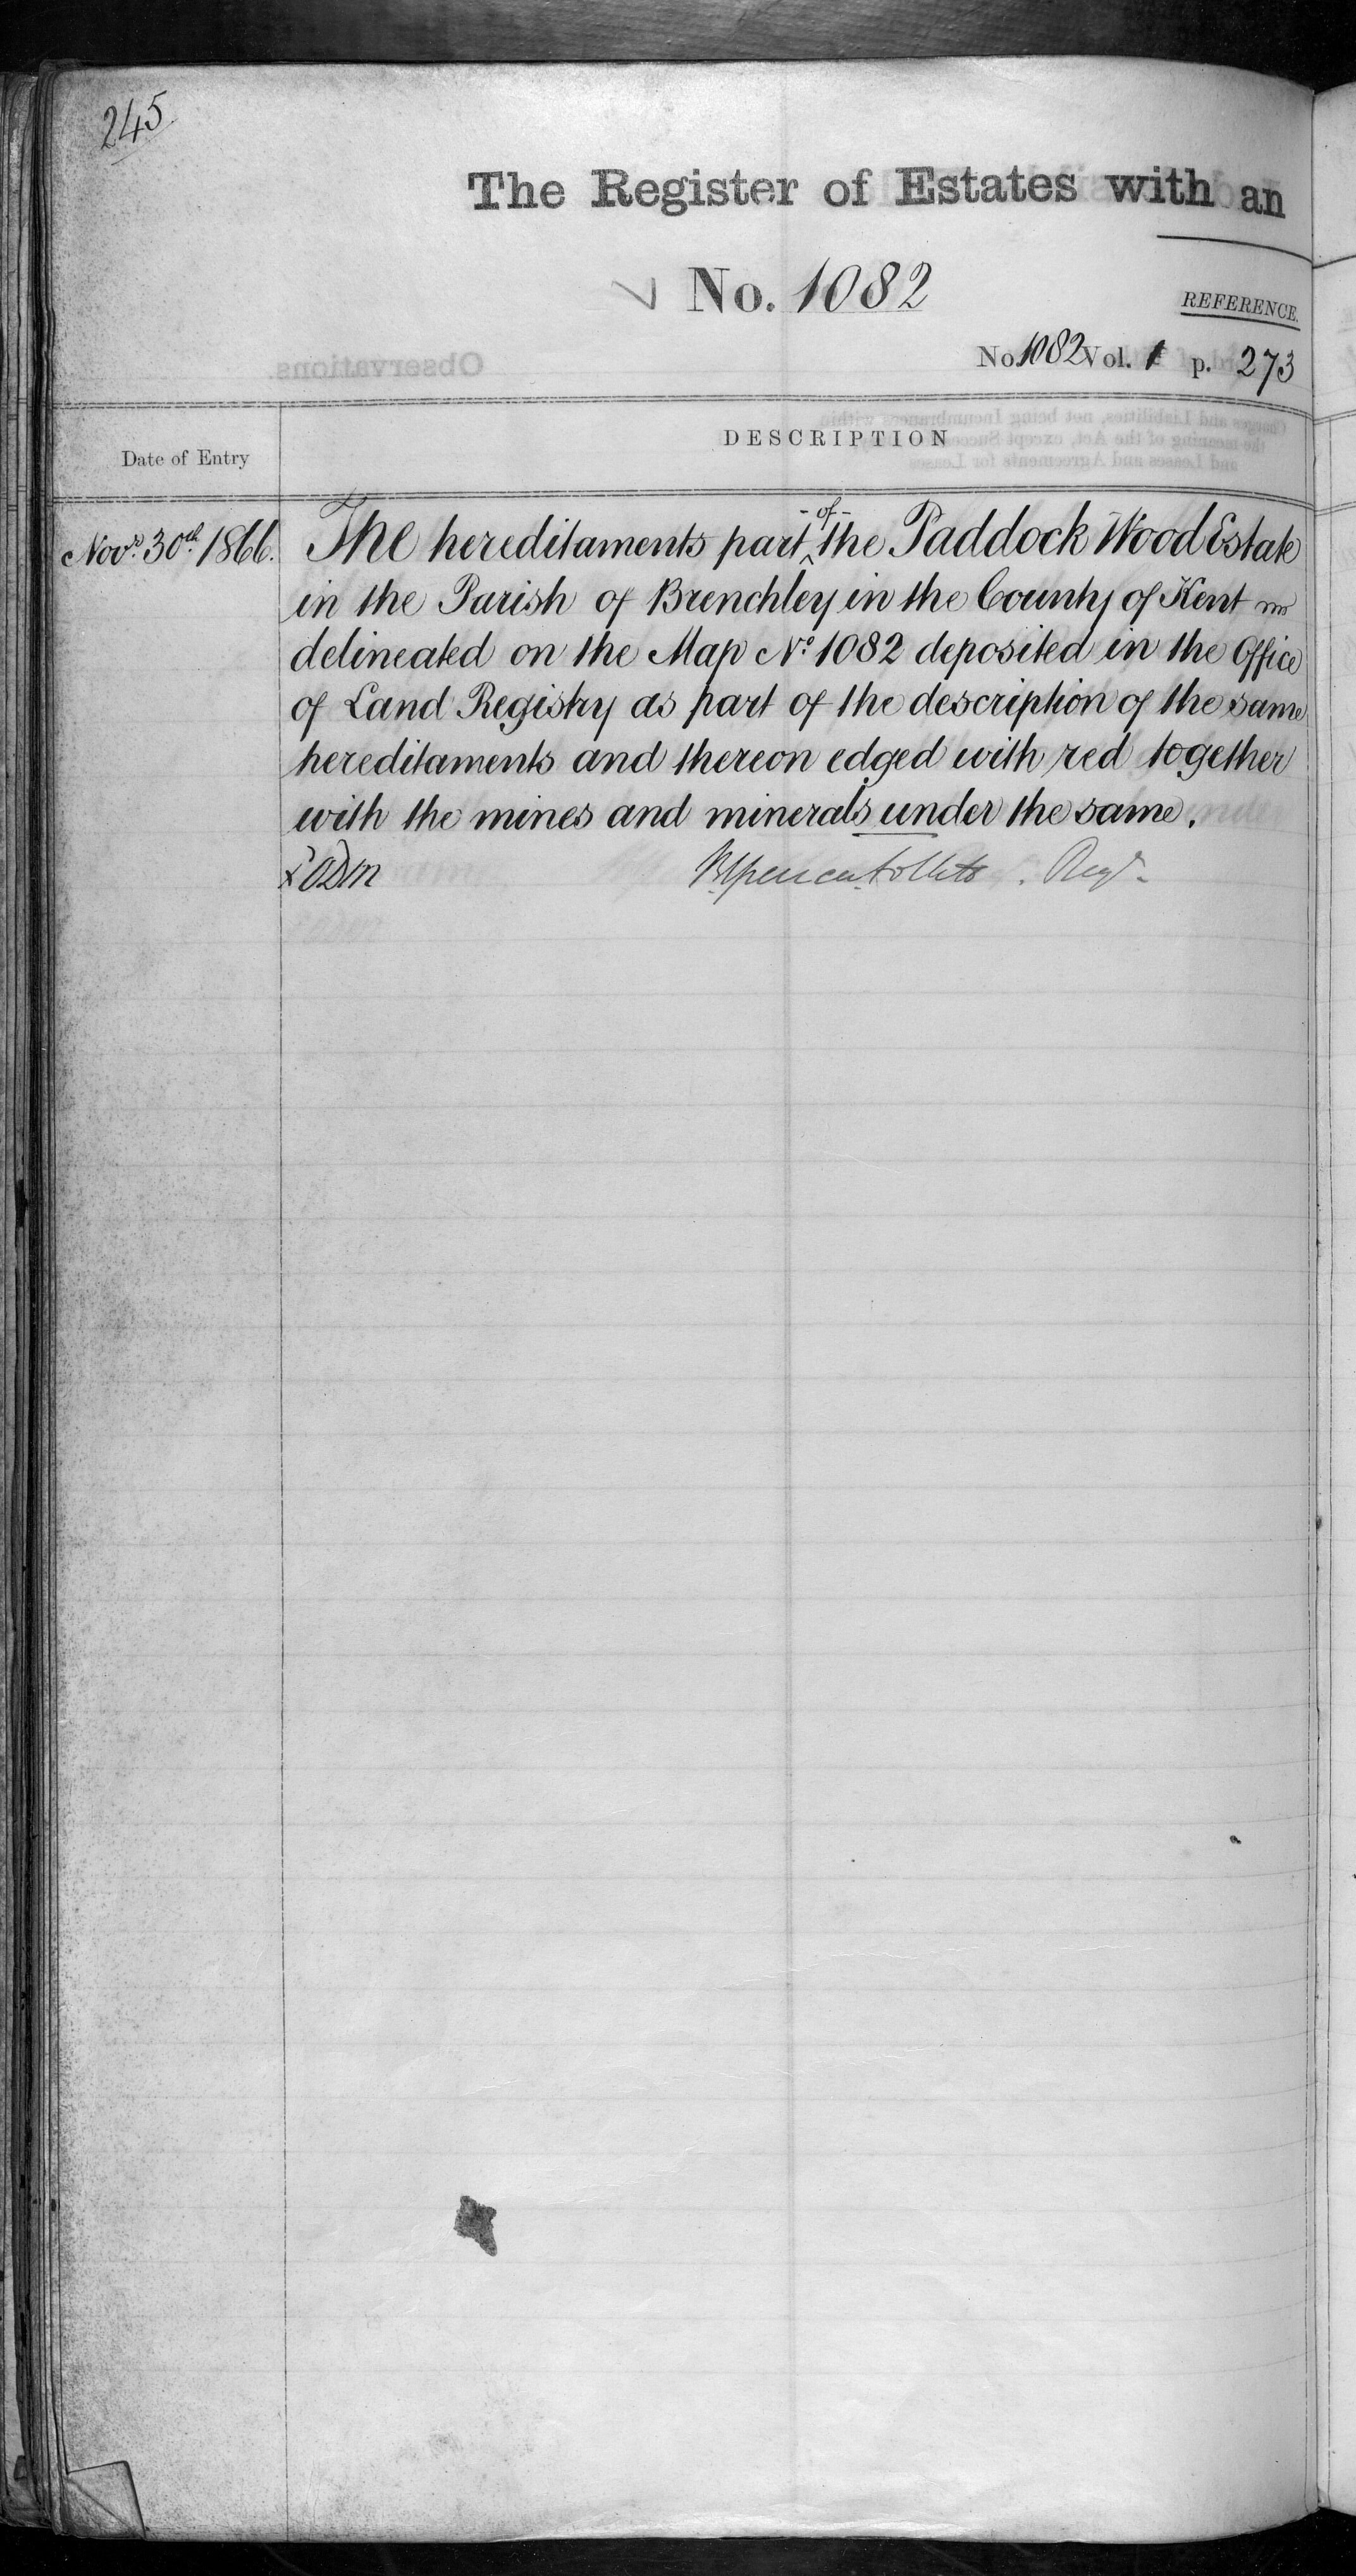 245
The Register of Estates with an
No. 1082
REFERENCE.
No 1082 Vol. 1 p. 273
Observations.
DESCRIPTION
Date of Entry
Novr. 30th. 1866. The hereditaments part of the Paddock Wood Estate
in the Parish of Brenchley in the County of Kent
delineated on the Map No. 1082 deposited in the Office
of Land Registry as part of the description of the same
hereditaments and thereon edged with red together
with the mines and minerals under the same.
Regr.